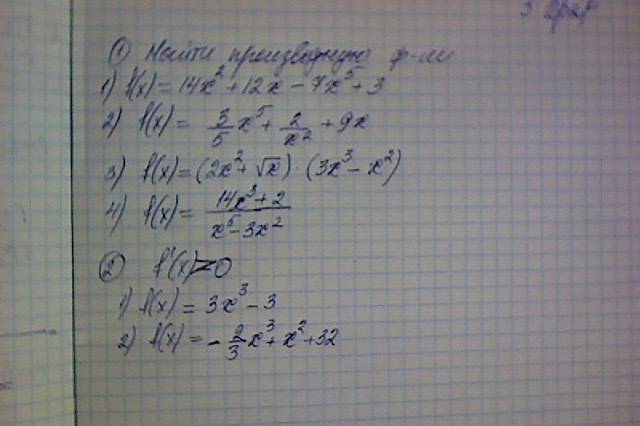 ① Найти производную ф-ии
1) f(x) = 14x² + 12x - 7x⁵ + 3
2) f(x) = 3/5 x⁵ + 2/x² + 9x
3) f(x) = (2x² + √x) · (3x³ - x²)
4) f(x) = (14x³ + 2)/(x⁵ - 3x²)
② f'(x) > 0
1) f(x) = 3x³ - 3
2) f(x) = - 2/3 x³ + x² + 32